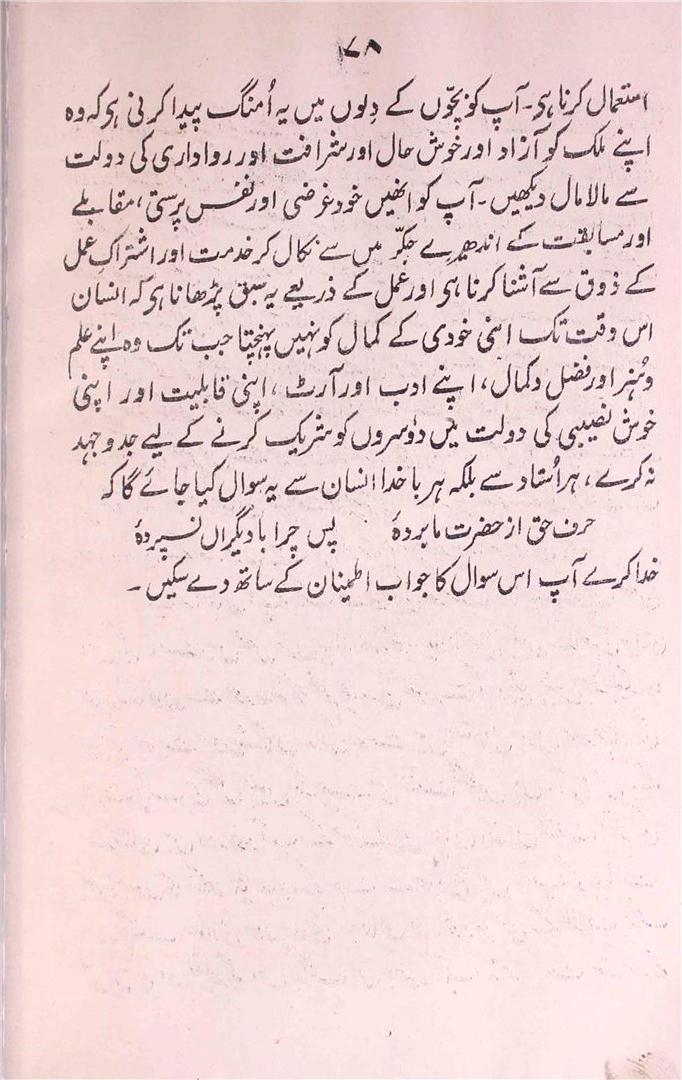 ۱۷۸
استعمال کرنا ہی۔ آپ کو بچّوں کے دِلوں میں یہ اُمنگ پیدا کرنی ہی کہ وہ
اپنے ملک کو آزاد اور خوش حال اور شرافت اور رواداری کی دولت
سے مالا مال دیکھیں۔ آپ کو انھیں خود غرضی اور نفس پرستی، مقابلے
اور مسابقت کے اندھیرے چکّر میں سے نکال کر خدمت اور اشتراکِ عمل
کے ذوق سے آشنا کرنا ہی اور عمل کے ذریعے یہ سبق پڑھانا ہی کہ انسان
اس وقت تک اپنی خودی کے کمال کو نہیں پہنچتا جب تک وہ اپنے علم
و ہُنر اور فضل و کمال، اپنے ادب اور آرٹ، اپنی قابلیت اور اپنی
خوش نصیبی کی دولت میں دُوسروں کو شریک کرنے کے لیے جدوجہد
نہ کرے، ہر اُستاد سے بلکہ ہر باخدا انسان سے یہ سوال کیا جائے گا کہ
حرفِ حق از حضرت ما بردۂ پس چرا با دیگراں نسپردۂ
خدا کرے آپ اس سوال کا جواب اطمینان کے ساتھ دے سکیں۔